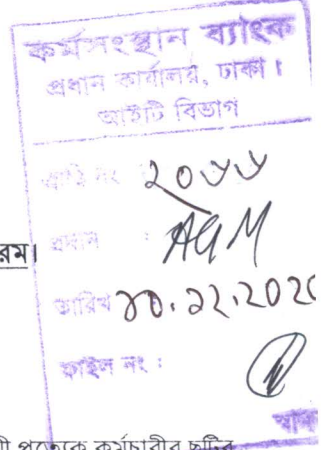 কর্মসংস্থান ব্যাংক
প্রধান কার্যালয়, ঢাকা।
আইটি বিভাগ
নং ২০৬৬
রম।
AGM
তারিখ ১০.১২.2020
ফাইল নং :
প্রত্যেক কর্মচারীর ছুটির